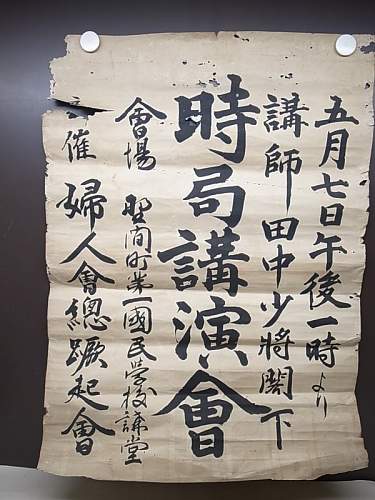 五月七日午後一時より
講師田中少將閣下
時局講演會
會場 野間町第一國民学校講堂
主催 婦人會總蹶起會